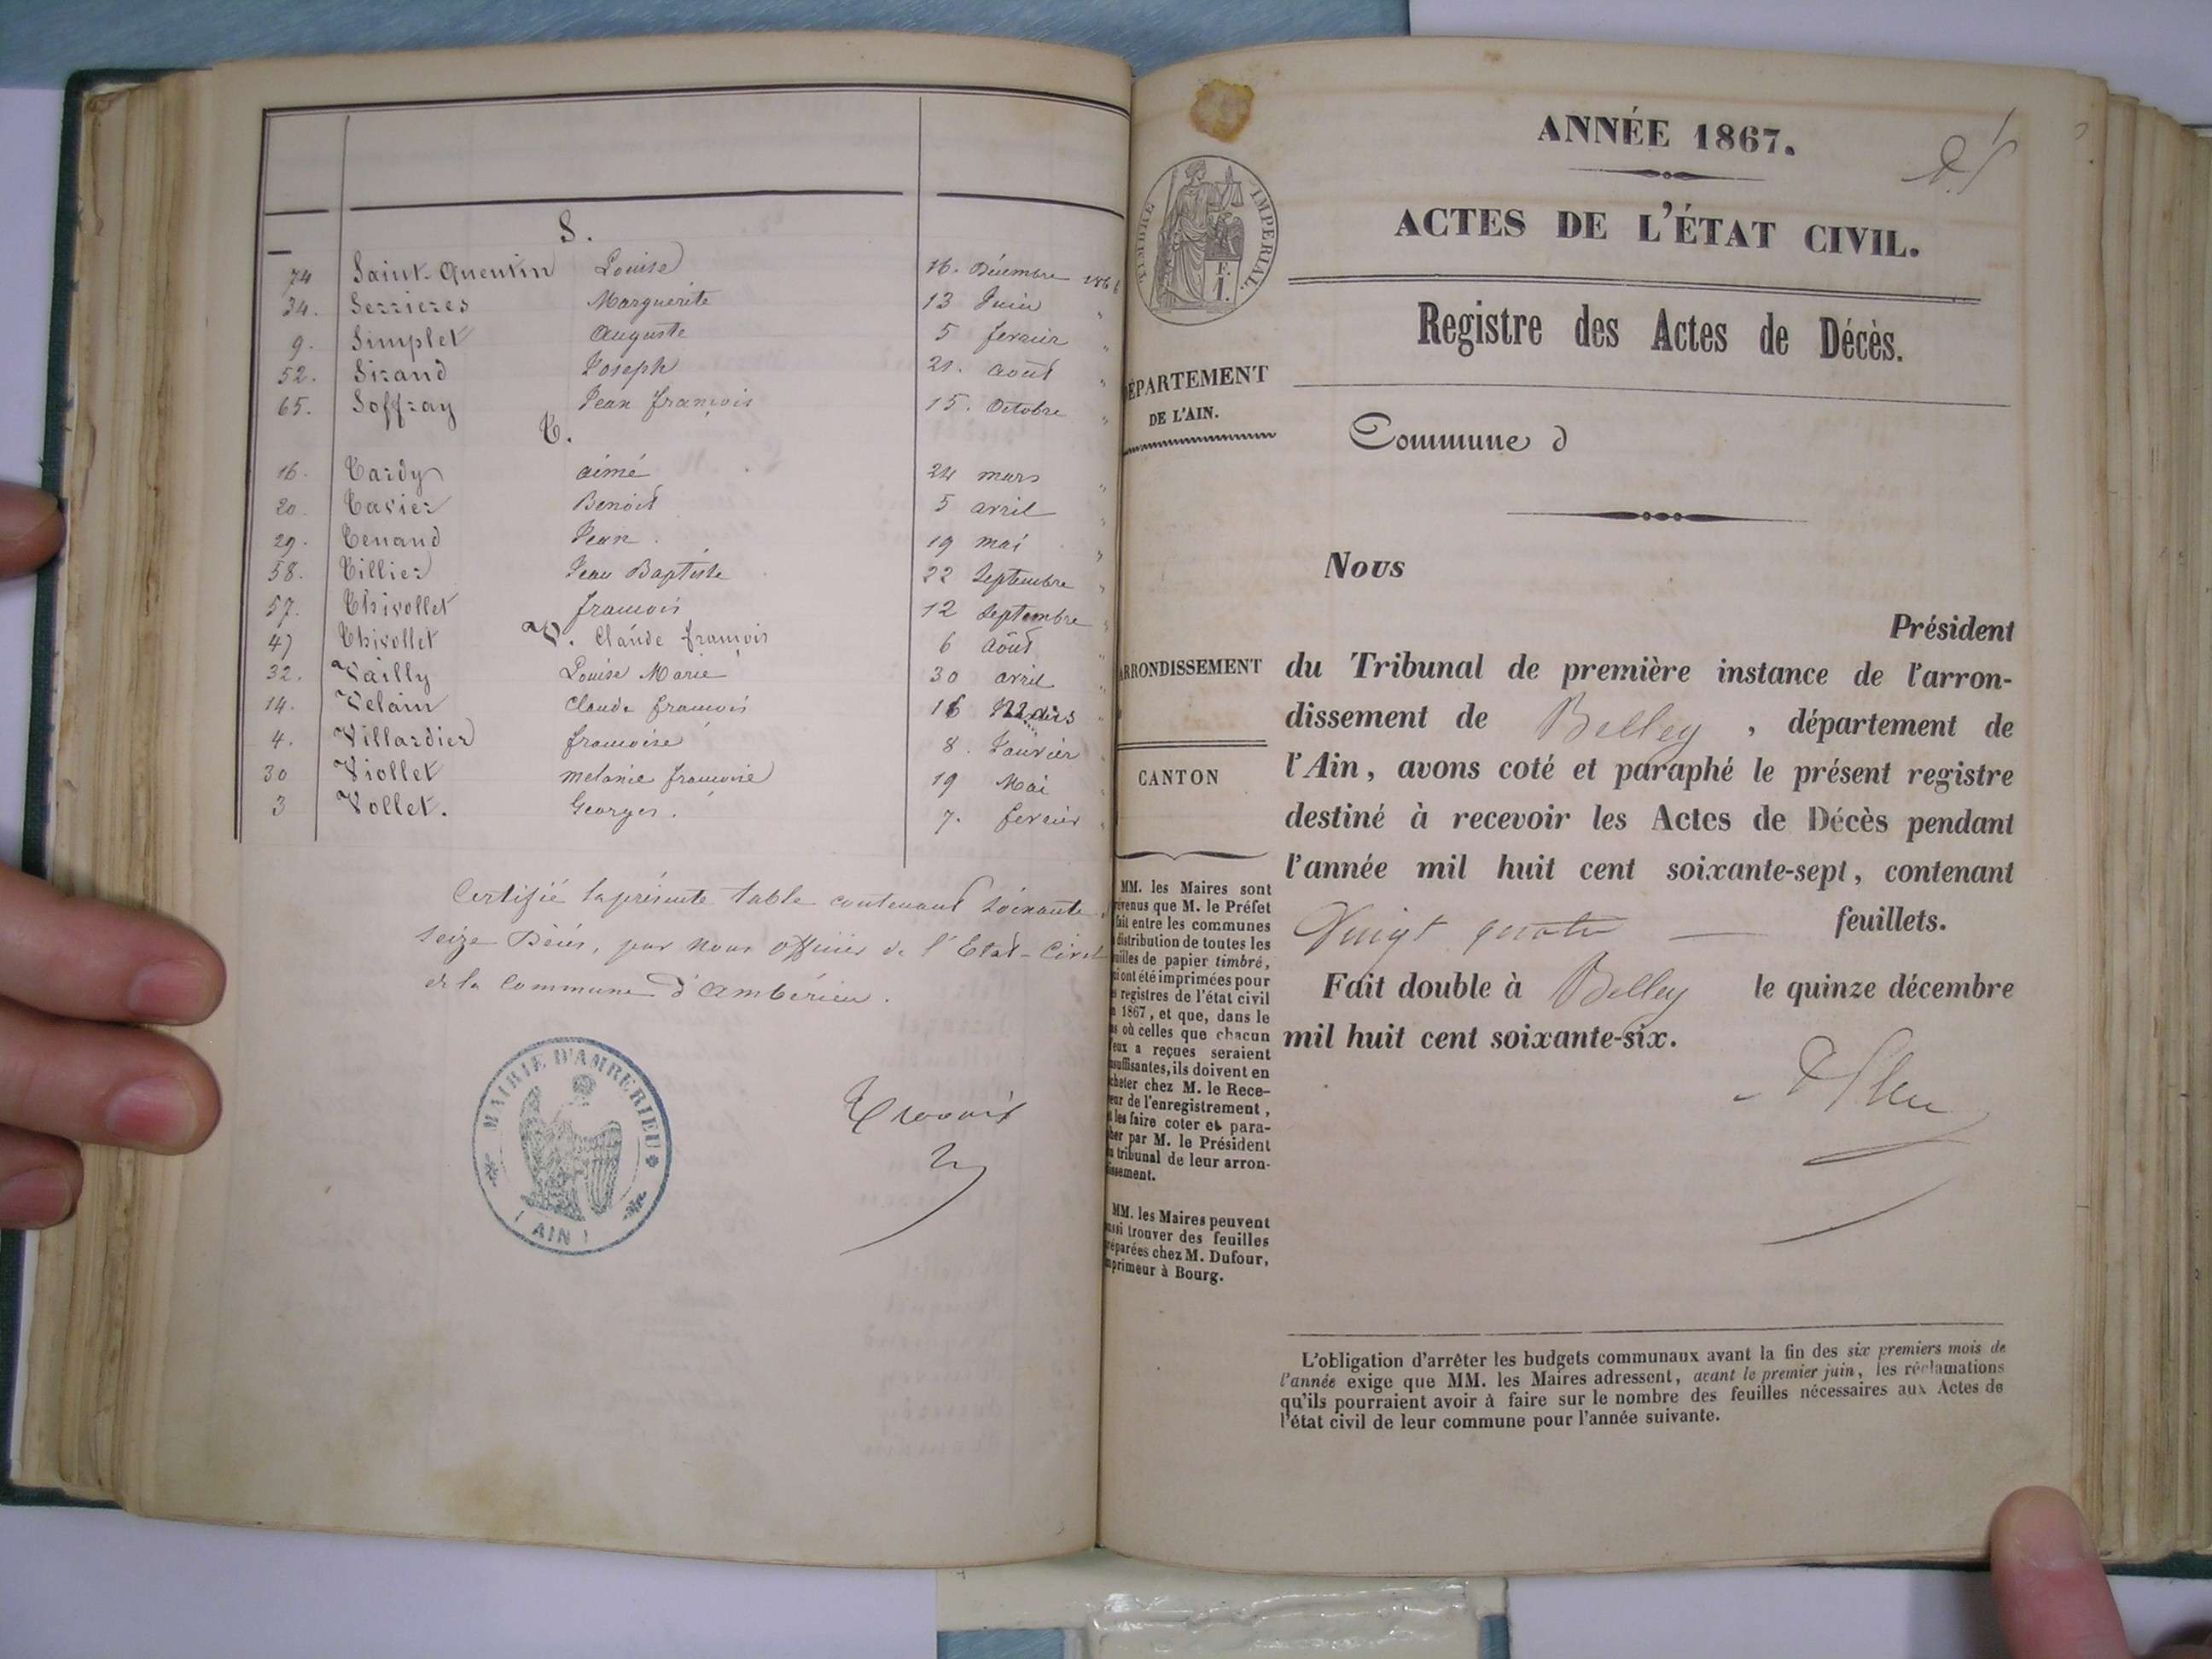 S.
74 Saint-Quentin Louise 16. Décembre 1866
34. Serrieres Marguerite 13 Juin "
9. Simplet Auguste 5 fevrier "
52. Sirand Joseph 21. août "
65. Soffray Jean françois 15. Octobre "
T.
16. Tardy aimé 24 mars "
20. Tavier Benoit 5 avril "
29. Tenand Jean. 19 mai "
58. Tillier Jean Baptiste 22 Septembre "
57. Thivollet françois 12 Septembre "
47 Thivollet Claude françois 6 Août "
V.
32. Vailly Louise Marie 30 avril "
14. Velain Claude françois 16 Mars "
4. Villardier françoise 8. Janvier "
30 Viollet melanie françoise 19 Mai "
3 Vollet. Georges. 7. fevrier "
Certifié la présente table contenant soixante
seize Décès, par nous officier de l'Etat-Civil
de la Commune d'ambérieu.
MAIRIE D'AMBERIEU
( AIN )
ANNÉE 1867.
ACTES DE L'ÉTAT CIVIL.
TIMBRE IMPERIAL.
Registre des Actes de Décès.
DÉPARTEMENT
DE L'AIN.
Commune d
Nous
Président
ARRONDISSEMENT
du Tribunal de première instance de l'arron-
dissement de Belley, département de
l'Ain, avons coté et paraphé le présent registre
destiné à recevoir les Actes de Décès pendant
l'année mil huit cent soixante-sept, contenant
Vingt quatre feuillets.
Fait double à Belley le quinze décembre
mil huit cent soixante-six.
CANTON
MM. les Maires sont
prévenus que M. le Préfet
fait entre les communes
distribution de toutes les
feuilles de papier timbré,
qui ont été imprimées pour
les registres de l'état civil
1867, et que, dans le
cas où celles que chacun
d'eux a reçues seraient
insuffisantes, ils doivent en
acheter chez M. le Rece-
veur de l'enregistrement,
et les faire coter et para-
pher par M. le Président
du tribunal de leur arron-
dissement.
MM. les Maires peuvent
aussi trouver des feuilles
préparées chez M. Dufour,
imprimeur à Bourg.
L'obligation d'arrêter les budgets communaux avant la fin des six premiers mois de
l'année exige que MM. les Maires adressent, avant le premier juin, les réclamations
qu'ils pourraient avoir à faire sur le nombre des feuilles nécessaires aux Actes de
l'état civil de leur commune pour l'année suivante.